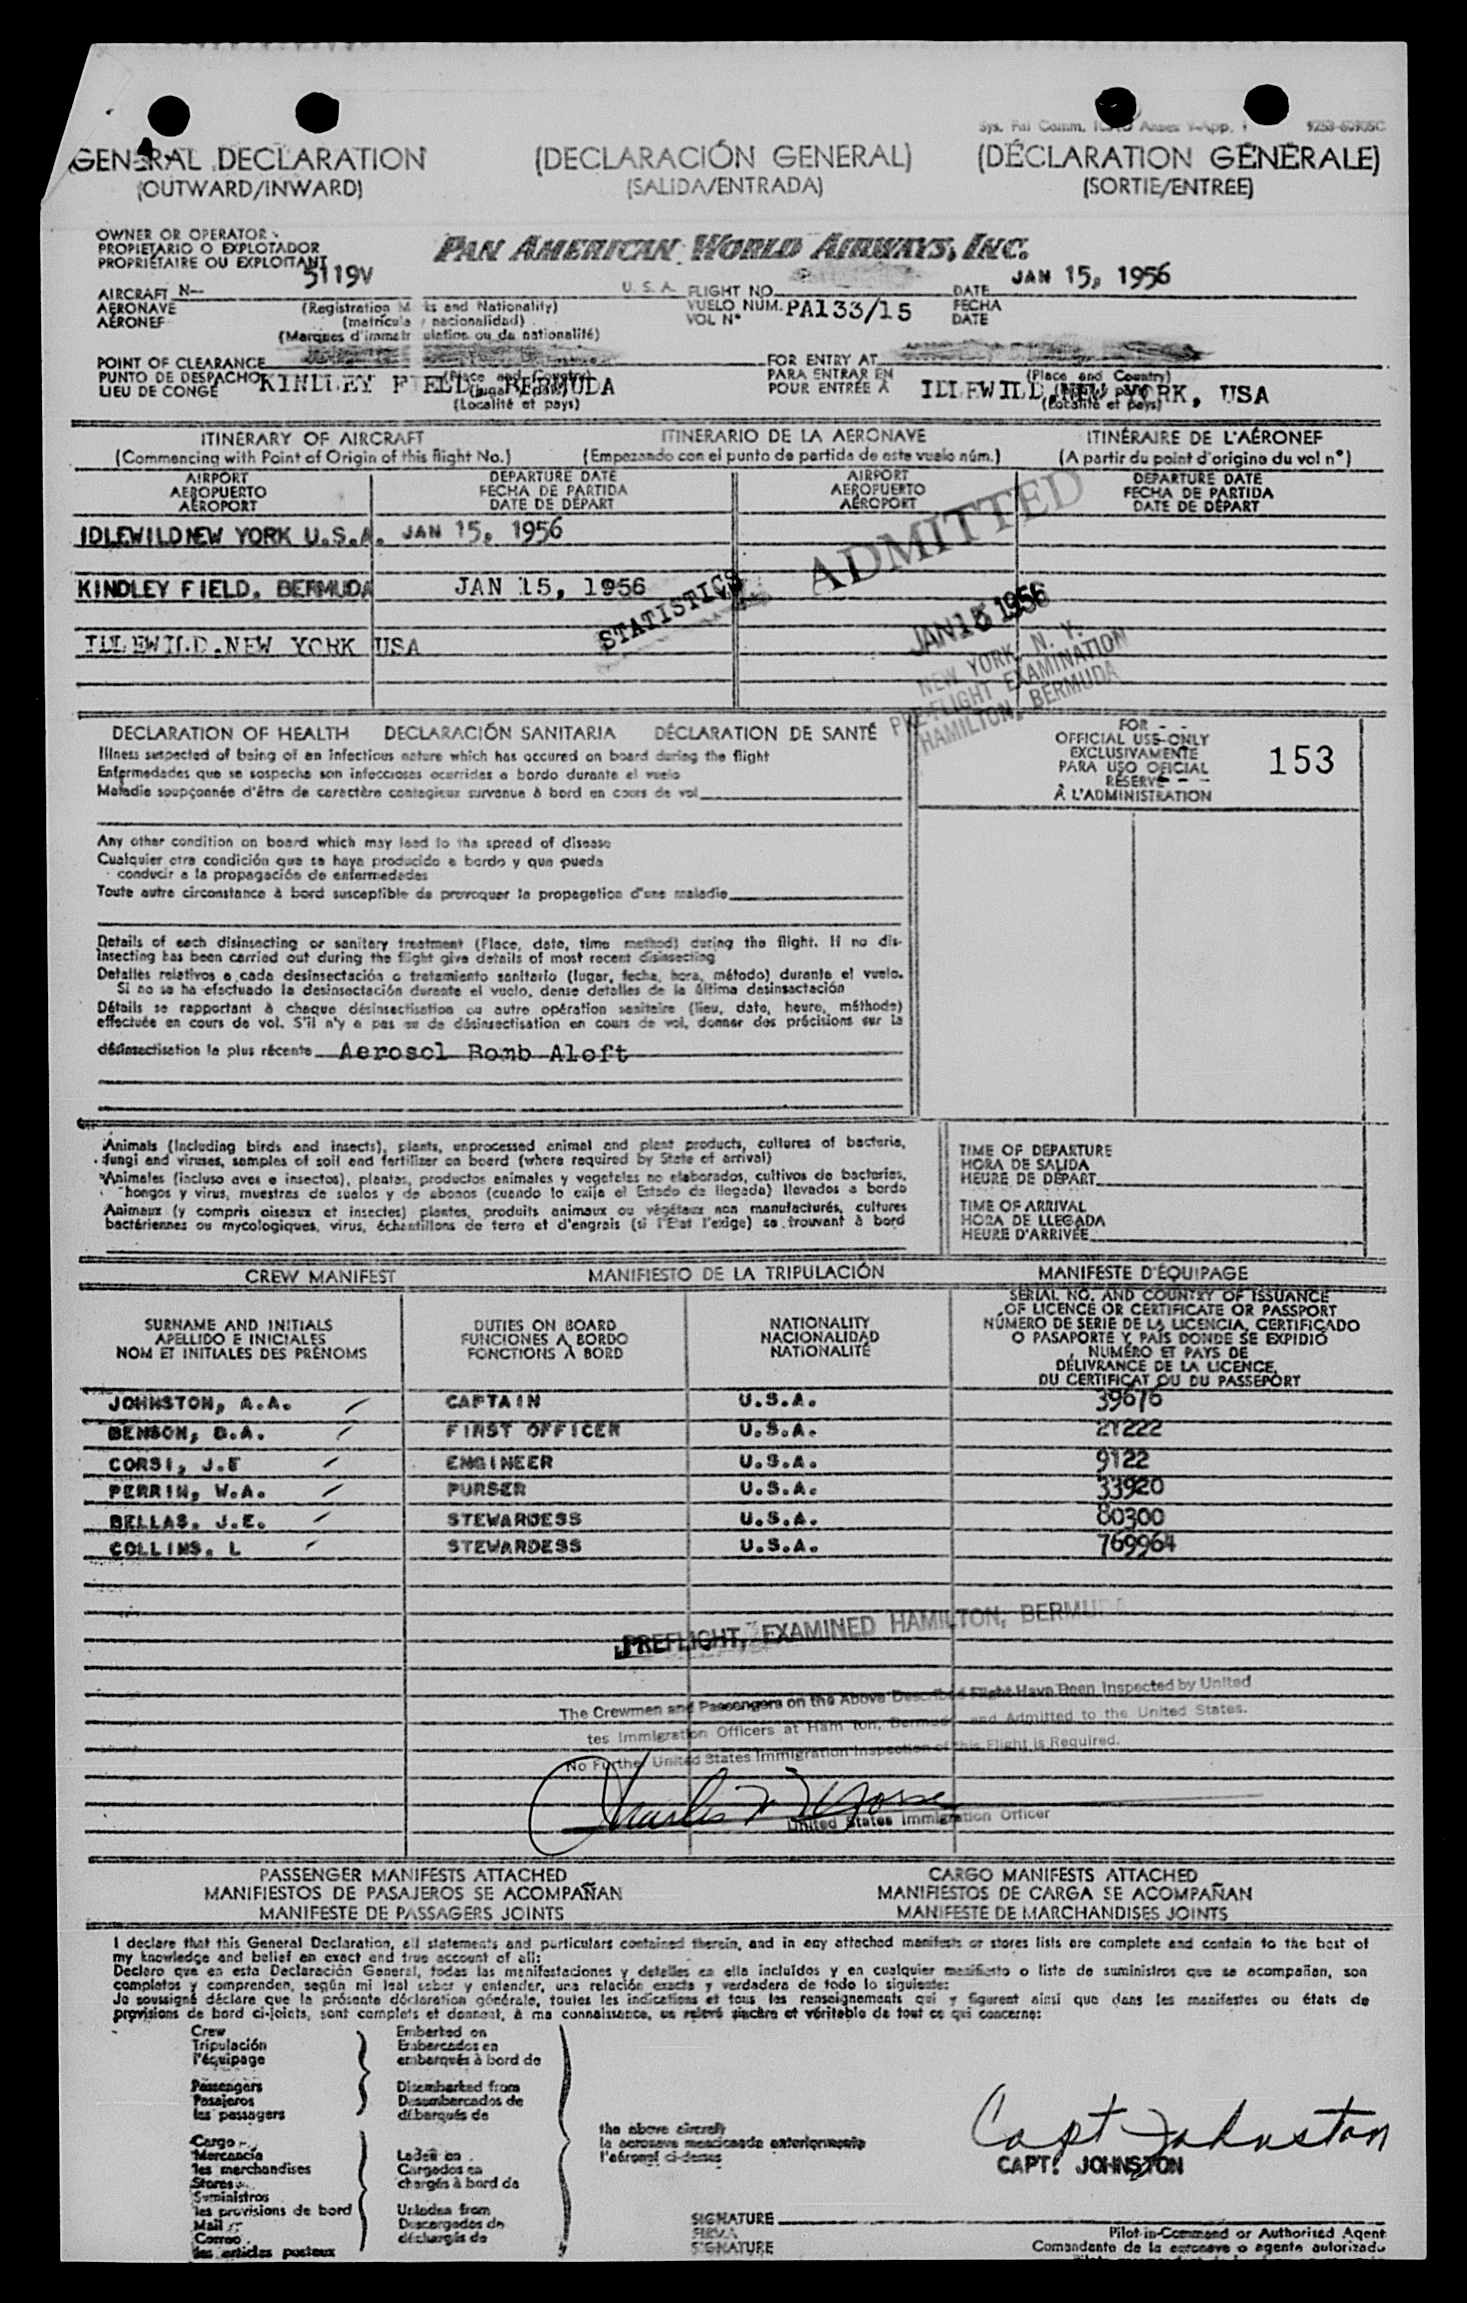 9253-60905C
GENERAL DECLARATION (DECLARACIÓN GENERAL) (DÉCLARATION GÉNÉRALE)
(OUTWARD/INWARD) (SALIDA/ENTRADA) (SORTIE/ENTRÉE)
OWNER OR OPERATOR
PROPIETARIO O EXPLOTADOR
PROPRIÉTAIRE OU EXPLOITANT
PAN AMERICAN WORLD AIRWAYS, INC.
AIRCRAFT N- 5119V U. S. A. FLIGHT NO. DATE JAN 15, 1956
AÉRONAVE (Registration and Nationality) VUELO NÚM. PA133/15 FECHA
AÉRONEF (matrícula nacionalidad) VOL N° DATE
(Marques d'immatriculation ou de nationalité)
POINT OF CLEARANCE FOR ENTRY AT
PUNTO DE DESPACHO KINDLEY FIELD, BERMUDA PARA ENTRAR EN (Place and Country)
LIEU DE CONGÉ POUR ENTRÉE À IDLEWILD, NEW YORK, USA
(Localité et pays) (Localité et pays)
ITINERARY OF AIRCRAFT ITINERARIO DE LA AERONAVE ITINÉRAIRE DE L'AÉRONEF
(Commencing with Point of Origin of this flight No.) (Empezando con el punto de partida de este vuelo núm.) (A partir du point d'origine du vol n°)
AIRPORT DEPARTURE DATE AIRPORT DEPARTURE DATE
AEROPUERTO FECHA DE PARTIDA AEROPUERTO FECHA DE PARTIDA
AÉROPORT DATE DE DÉPART AÉROPORT DATE DE DÉPART
IDLEWILD NEW YORK U.S.A. JAN 15, 1956
KINDLEY FIELD, BERMUDA JAN 15, 1956
IDLEWILD, NEW YORK USA
STATISTICS
ADMITTED
JAN 15 1956
NEW YORK, N. Y.
PRE-FLIGHT EXAMINATION
HAMILTON, BERMUDA
DECLARATION OF HEALTH DECLARACIÓN SANITARIA DÉCLARATION DE SANTÉ
Illness suspected of being of an infectious nature which has occured on board during the flight
Enfermedades que se sospecha son infecciosas ocurridas a bordo durante el vuelo
Maladie soupçonnée d'être de caractère contagieux survenue à bord en cours de vol
FOR
OFFICIAL USE ONLY
EXCLUSIVAMENTE
PARA USO OFICIAL
RÉSERVÉ
À L'ADMINISTRATION
153
Any other condition on board which may lead to the spread of disease
Cualquier otra condición que se haya producido a bordo y que pueda
conducir a la propagación de enfermedades
Toute autre circonstance à bord susceptible de provoquer la propagation d'une maladie
Details of each disinsecting or sanitary treatment (Place, date, time method) during the flight. If no dis-
insecting has been carried out during the flight give details of most recent disinsecting
Detalles relativos a cada desinsectación o tratamiento sanitario (lugar, fecha, hora, método) durante el vuelo.
Si no se ha efectuado la desinsectación durante el vuelo, dense detalles de la última desinsectación
Détails se rapportant à chaque désinsectisation ou autre opération sanitaire (lieu, date, heure, méthode)
effectuée en cours de vol. S'il n'y a pas eu de désinsectisation en cours de vol, donner des précisions sur la
désinsectisation la plus récente Aerosol Bomb Aloft
Animals (Including birds and insects), plants, unprocessed animal and plant products, cultures of bacteria,
fungi and viruses, samples of soil and fertilizer on board (where required by State of arrival)
Animales (incluso aves e insectos), plantas, productos animales y vegetales no elaborados, cultivos de bacterias,
hongos y virus, muestras de suelos y de abonos (cuando lo exija el Estado de llegada) llevados a bordo
Animaux (y compris oiseaux et insectes) plantes, produits animaux ou végétaux non manufacturés, cultures
bactériennes ou mycologiques, virus, échantillons de terre et d'engrais (si l'État l'exige) se trouvant à bord
TIME OF DEPARTURE
HORA DE SALIDA
HEURE DE DÉPART
TIME OF ARRIVAL
HORA DE LLEGADA
HEURE D'ARRIVÉE
CREW MANIFEST MANIFIESTO DE LA TRIPULACIÓN MANIFESTE D'ÉQUIPAGE
SURNAME AND INITIALS DUTIES ON BOARD NATIONALITY
APELLIDO E INICIALES FUNCIONES A BORDO NACIONALIDAD
NOM ET INITIALES DES PRÉNOMS FONCTIONS À BORD NATIONALITÉ
SERIAL NO. AND COUNTRY OF ISSUANCE
OF LICENCE OR CERTIFICATE OR PASSPORT
NÚMERO DE SERIE DE LA LICENCIA, CERTIFICADO
O PASAPORTE Y PAÍS DONDE SE EXPIDIÓ
NUMÉRO ET PAYS DE
DÉLIVRANCE DE LA LICENCE,
DU CERTIFICAT OU DU PASSEPORT
JOHNSTON, A.A. CAPTAIN U.S.A. 39676
BENSON, D.A. FIRST OFFICER U.S.A. 21222
CORSI, J.F ENGINEER U.S.A. 9122
PERRIN, W.A. PURSER U.S.A. 33920
BELLAS. J.E. STEWARDESS U.S.A. 80300
COLLINS. L STEWARDESS U.S.A. 769964
PREFLIGHT, EXAMINED HAMILTON, BERMUDA
The Crewmen and Passengers on the Above Described Flight Have Been Inspected by United
tes Immigration Officers at Ham ton, Bermuda and Admitted to the United States.
No Further United States Immigration Inspection of this Flight is Required.
Charles M Morse
United States Immigration Officer
PASSENGER MANIFESTS ATTACHED CARGO MANIFESTS ATTACHED
MANIFIESTOS DE PASAJEROS SE ACOMPAÑAN MANIFIESTOS DE CARGA SE ACOMPAÑAN
MANIFESTE DE PASSAGERS JOINTS MANIFESTE DE MARCHANDISES JOINTS
I declare that this General Declaration, all statements and particulars contained therein, and in any attached manifests or stores lists are complete and contain to the best of
my knowledge and belief an exact and true account of all:
Declaro que en esta Declaración General, todas las manifestaciones y detalles en ella incluidos y en cualquier manifiesto o lista de suministros que se acompañan, son
completos y comprenden, según mi leal saber y entender, una relación exacta y verdadera de todo lo siguiente:
Je soussigné déclare que la présente déclaration générale, toutes les indications et tous les renseignements qui y figurent ainsi que dans les manifestes ou états de
provisions de bord ci-joints, sont complets et donnent, à ma connaissance, un relevé sincère et véritable de tout ce qui concerne:
Crew Embarked on
Tripulación Embarcados en
l'équipage embarqués à bord de
Passengers Disembarked from
Pasajeros Desembarcados de
les passagers débarqués de
the above aircraft
la aeronave mencionada anteriormente
l'aéronef ci-dessus
Cargo
Mercancía Laden on
les merchandises Cargados en
Stores chargés à bord de
Suministros
les provisions de bord Unladen from
Mail Descargados de
Correo déchargés de
les articles postaux
Capt Johnston
CAPT. JOHNSTON
SIGNATURE
FIRMA
SIGNATURE
Pilot-in-Command or Authorised Agent
Comandante de la aeronave o agente autorizado